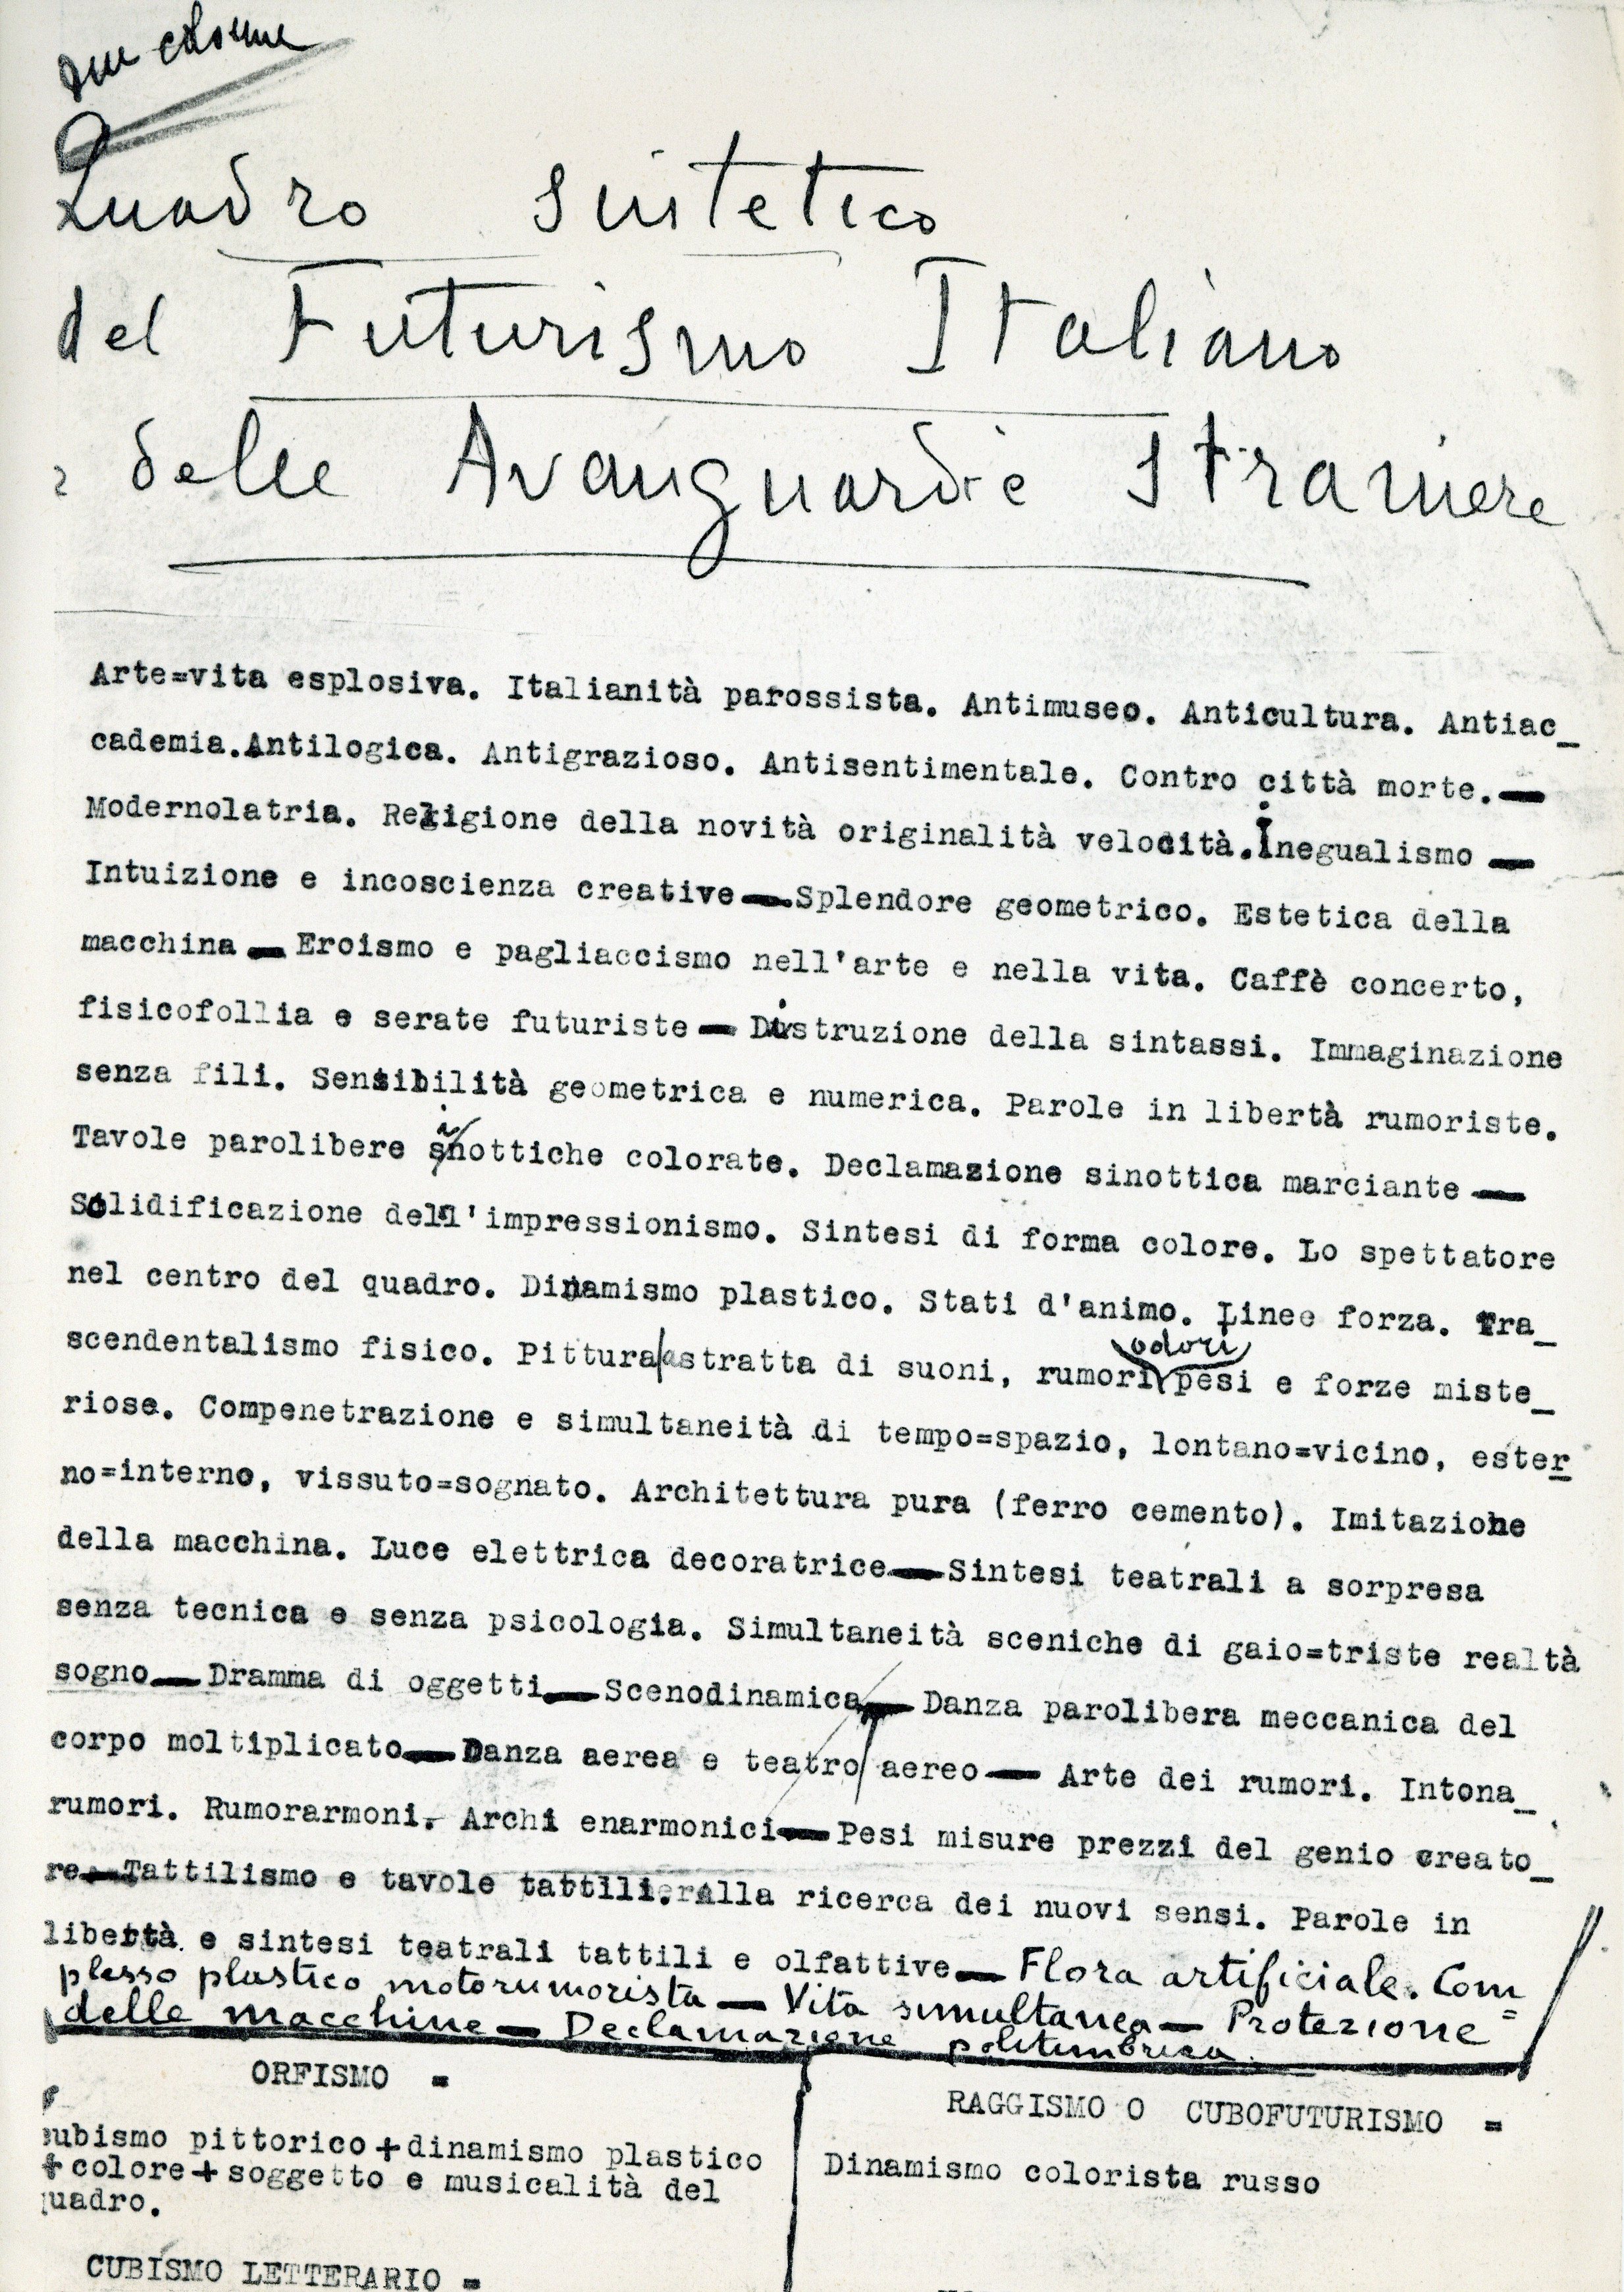 due colonne
Quadro sintetico
del Futurismo Italiano
e delle Avanguardie straniere
Arte=vita esplosiva. Italianità parossista. Antimuseo. Anticultura. Antiac_
cademia.Antilogica. Antigrazioso. Antisentimentale. Contro città morte.—
Modernolatria. Religione della novità originalità velocità.Inegualismo —
Intuizione e incoscienza creative—Splendore geometrico. Estetica della
macchina—Eroismo e pagliaccismo nell'arte e nella vita. Caffè concerto,
fisicofollia e serate futuriste— Distruzione della sintassi. Immaginazione
senza fili. Sensibilità geometrica e numerica. Parole in libertà rumoriste.
Tavole parolibere sinottiche colorate. Declamazione sinottica marciante—
Solidificazione dell'impressionismo. Sintesi di forma colore. Lo spettatore
nel centro del quadro. Dinamismo plastico. Stati d'animo. Linee forza. Tra_
scendentalismo fisico. Pittura|astratta di suoni, rumori odori pesi e forze miste_
riose. Compenetrazione e simultaneità di tempo=spazio, lontano=vicino, ester
no=interno, vissuto=sognato. Architettura pura (ferro cemento). Imitazione
della macchina. Luce elettrica decoratrice—Sintesi teatrali a sorpresa
senza tecnica e senza psicologia. Simultaneità sceniche di gaio=triste realtà
sogno—Dramma di oggetti—Scenodinamica— Danza parolibera meccanica del
corpo moltiplicato—Danza aerea e teatro aereo— Arte dei rumori. Intona_
rumori. Rumorarmoni. Archi enarmonici—Pesi misure prezzi del genio creato_
re—Tattilismo e tavole tattili. Alla ricerca dei nuovi sensi. Parole in
libertà e sintesi teatrali tattili e olfattive— Flora artificiale. Com
plesso plastico motorumorista — Vita simultanea — Protezione =
delle macchine — Declamazione politimbrica.
ORFISMO =
cubismo pittorico+dinamismo plastico
+colore+soggetto e musicalità del
quadro.
CUBISMO LETTERARIO =
RAGGISMO O CUBOFUTURISMO =
Dinamismo colorista russo